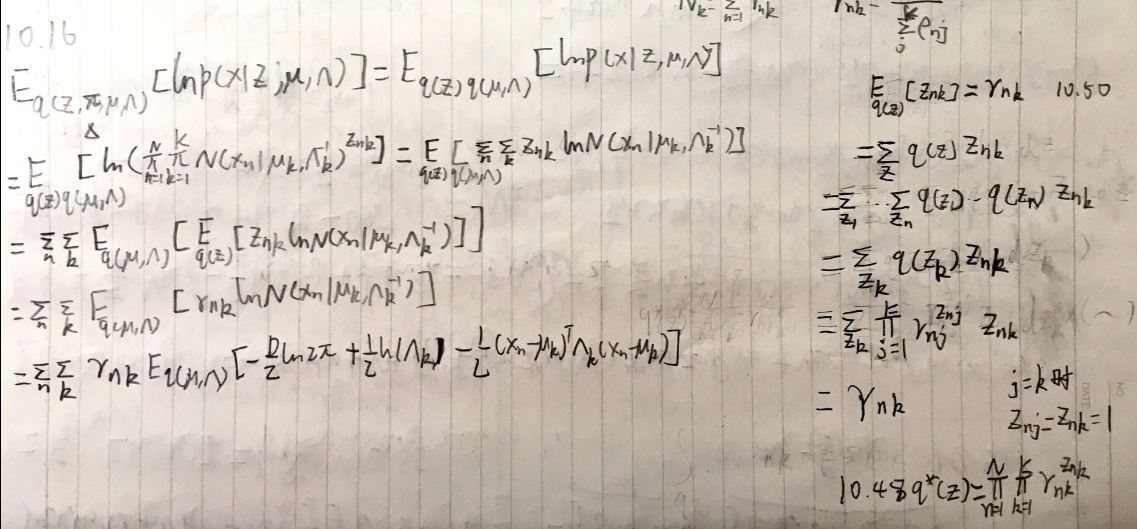 N_k = Σ_{n=1} r_{nk}
r_{nk} = / Σ_j^K ρ_{nj}
10.16
E_{q(z,π,μ,Λ)} [ln p(x|z,μ,Λ)] = E_{q(z)q(μ,Λ)} [ln p(x|z,μ,Λ)]
Δ
= E_{q(z)q(μ,Λ)} [ln(∏_{n=1}^N ∏_{k=1}^K N(x_n|μ_k,Λ_k^{-1})^{z_{nk}}] = E_{q(z)q(μ,Λ)} [Σ_n Σ_k z_{nk} ln N(x_n|μ_k,Λ_k^{-1})]
= Σ_n Σ_k E_{q(μ,Λ)} [E_{q(z)} [z_{nk} ln N(x_n|μ_k,Λ_k^{-1})]]
= Σ_n Σ_k E_{q(μ,Λ)} [r_{nk} ln N(x_n|μ_k,Λ_k^{-1})]
= Σ_n Σ_k r_{nk} E_{q(μ,Λ)} [-D/2 ln 2π + 1/2 ln(Λ_k) - 1/2 (x_n-μ_k)^T Λ_k (x_n-μ_k)]
E_{q(z)} [z_{nk}] = r_{nk} 10.50
= Σ_z q(z) z_{nk}
= Σ_{z_1} ... Σ_{z_n} q(z_1) ... q(z_n) z_{nk}
= Σ_{z_k} q(z_k) z_{nk}
= Σ_{z_k} ∏_{j=1}^K r_{nj}^{z_{nj}} z_{nk}
= r_{nk}
j=k时
z_{nj} = z_{nk} = 1
10.48 q*(z) = ∏_{n=1}^N ∏_{k=1}^K r_{nk}^{z_{nk}}